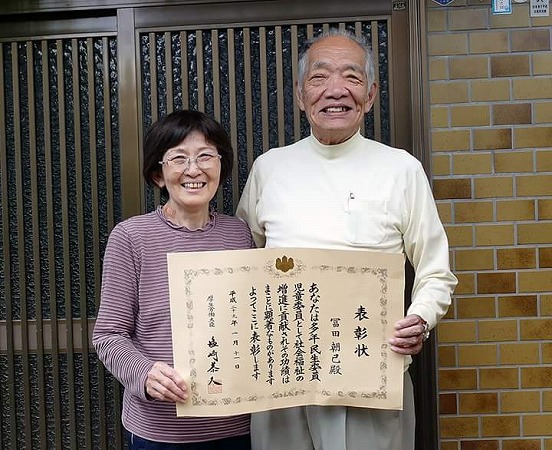 表彰状
冨田朝己殿
あなたは多年民生委員
児童委員として社会福祉の
増進に貢献されその功績は
まことに顕著なものがあります
よってここに表彰します
平成二十九年一月十一日
厚生労働大臣 塩崎恭久